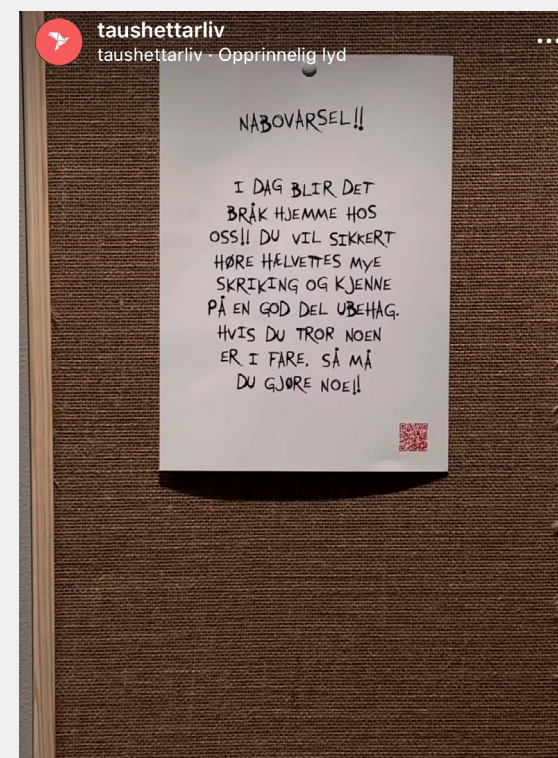 taushettarliv
taushettarliv · Opprinnelig lyd
NABOVARSEL!!
I DAG BLIR DET
BRÅK HJEMME HOS
OSS!! DU VIL SIKKERT
HØRE HÆLVETTES MYE
SKRIKING OG KJENNE
PÅ EN GOD DEL UBEHAG.
HVIS DU TROR NOEN
ER I FARE, SÅ MÅ
DU GJØRE NOE!!